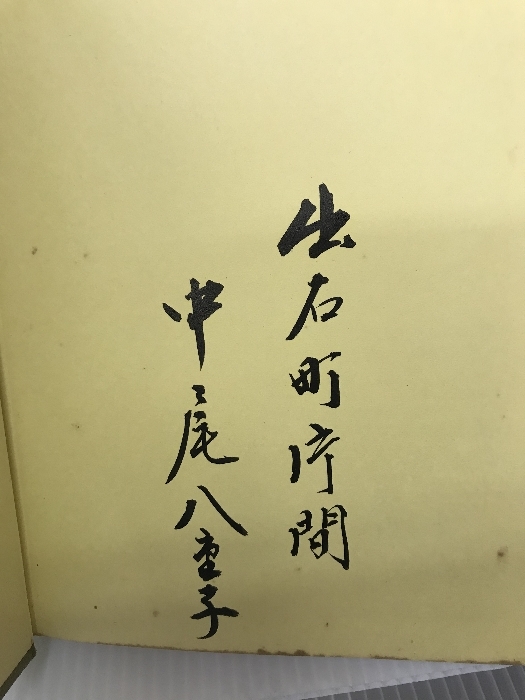 出石町片間
中尾八重子